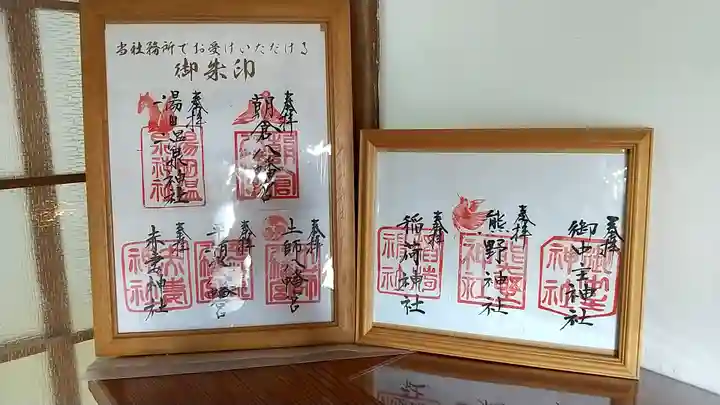 当社務所でお受けいただける
御朱印
奉拝
朝倉八幡宮
奉拝
湯田温泉神社
奉拝
土師八幡宮
奉拝
奉拝
朱貴神社
奉拝
御中主神社
奉拝
熊野神社
奉拝
稲荷神社